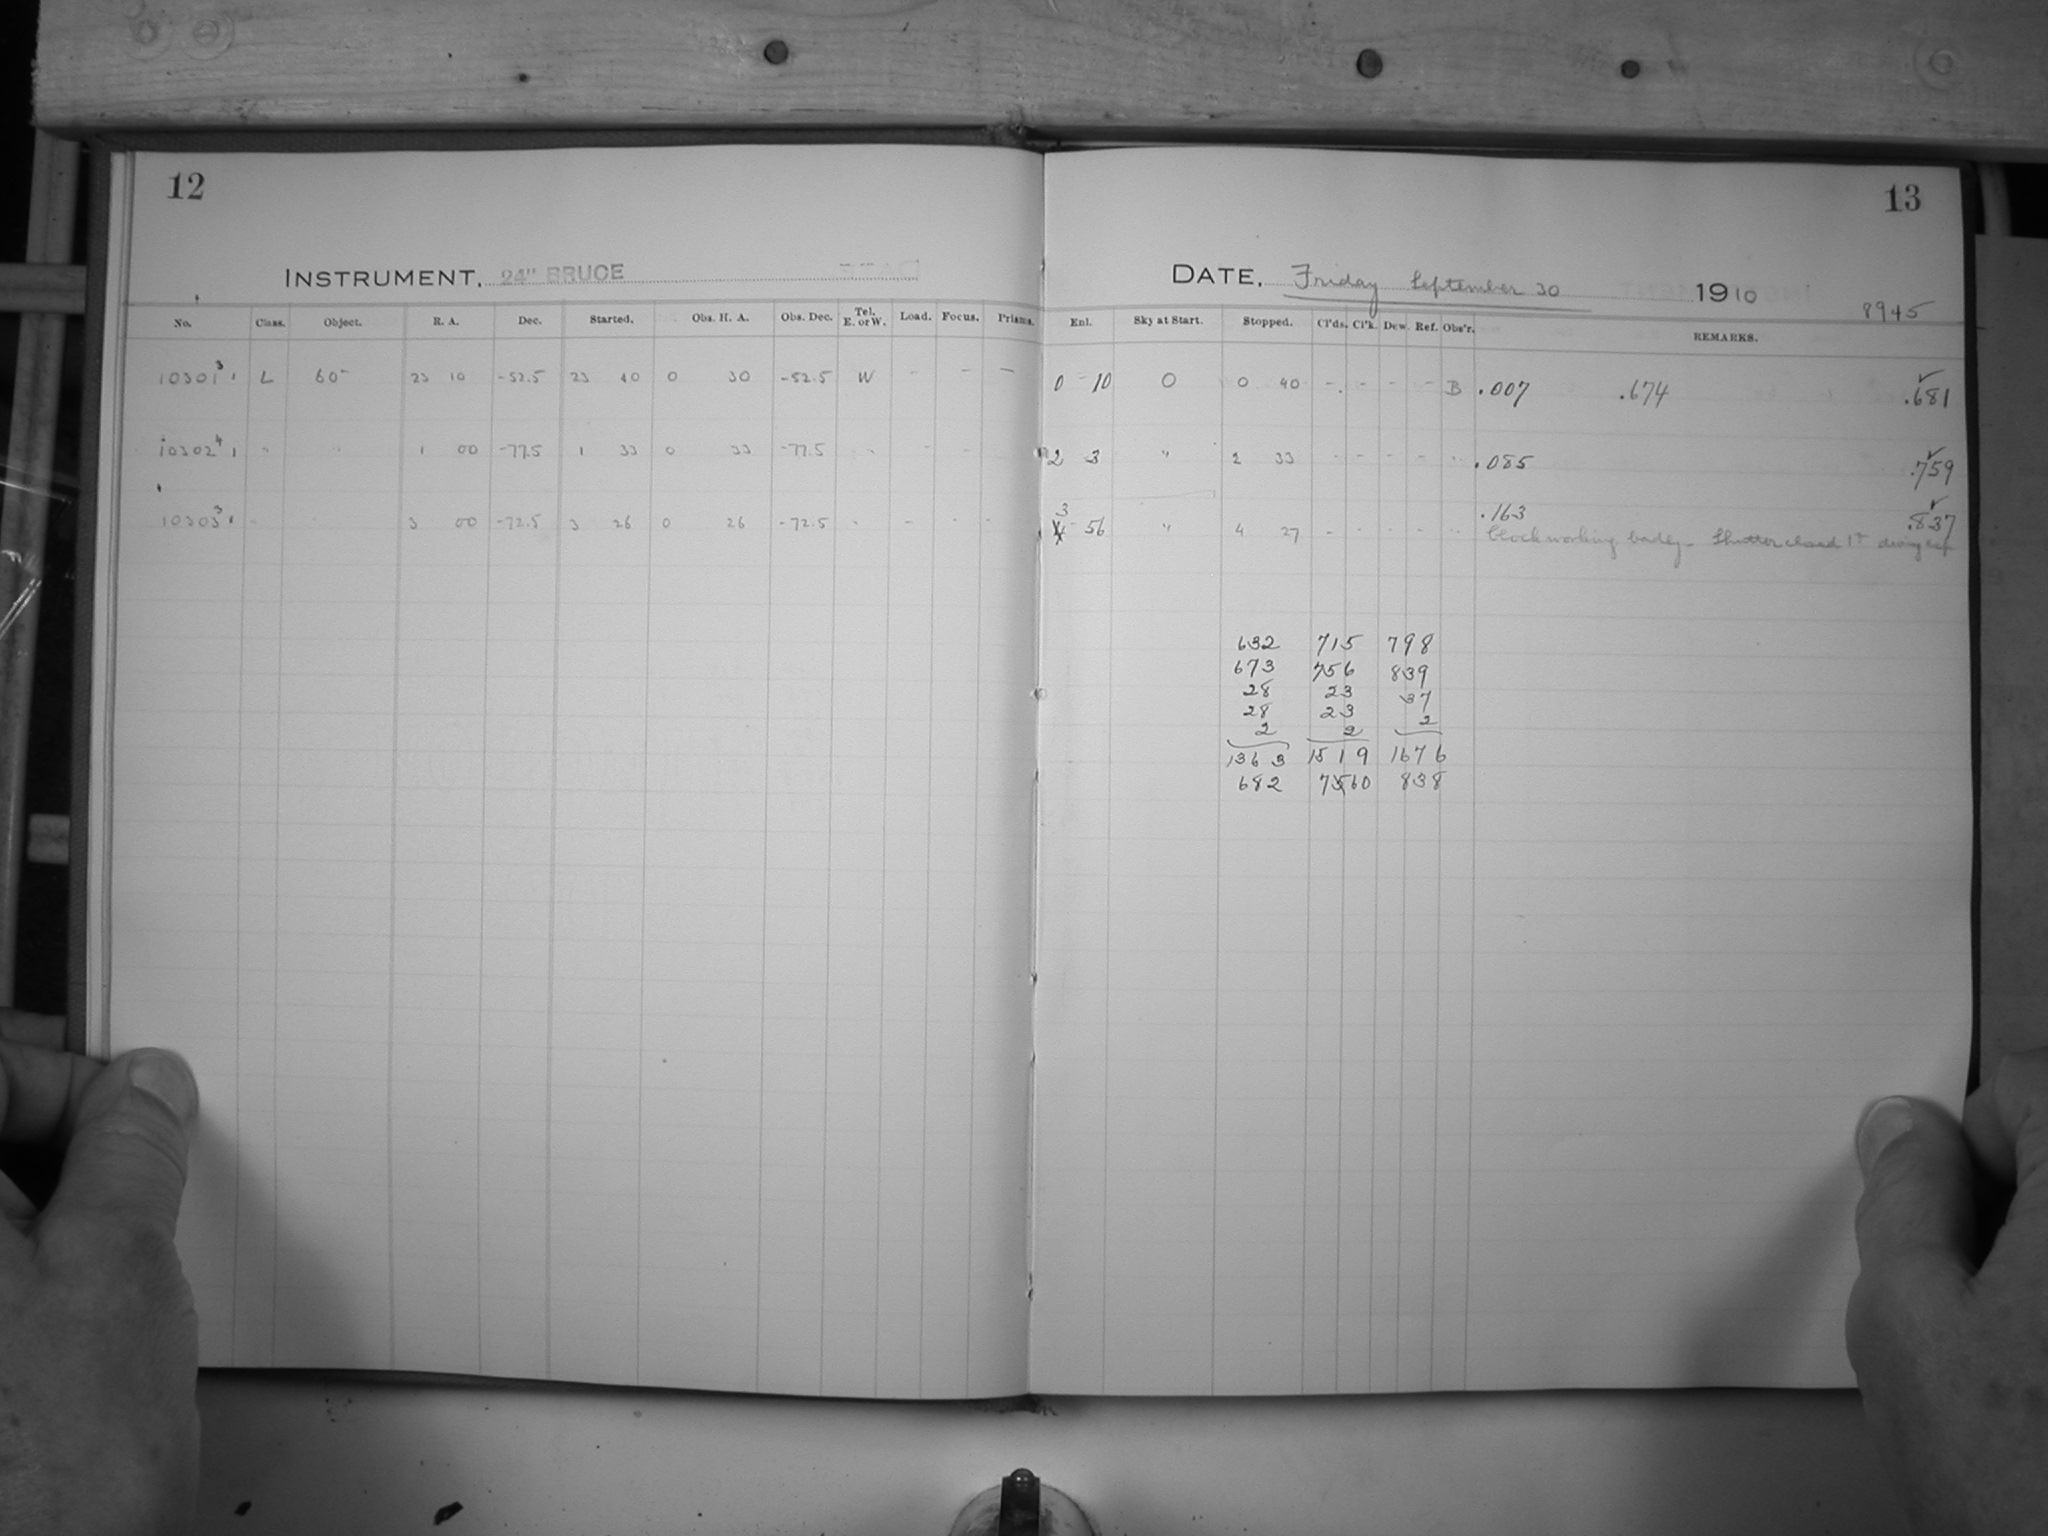 12
INSTRUMENT, 24" BRUCE
No. Class. Object. R. A. Dec. Started. Obs. H. A. Obs. Dec. Tel. E. or W. Load. Focus. Prisms.
10301 3 L 60- 23 10 -52.5 23 40 0 30 -52.5 W - - -
10302 4 " " 1 00 -77.5 1 33 0 33 -77.5 " - -
10303 3 " " 3 00 -72.5 3 26 0 26 -72.5 " - - -
13
DATE, Friday September 30 1910
8945
Enl. Sky at Start. Stopped. Cl'ds. Cl'k. Dew. Ref. Obs'r. REMARKS.
0 - 10 0 0 40 - - - - B .007 .674 .681
2 3 " 2 33 - - - - " .085 .759
3 .163 .837
56 " 4 27 - - - - " Clock working badly - Shutter closed 1m during
632 715 798
673 756 839
28 23 37
28 23 2
2 2
1363 1519 1676
682 760 838